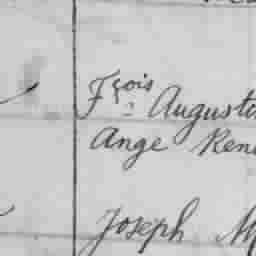 Fçois Augustin
Ange René
Joseph M